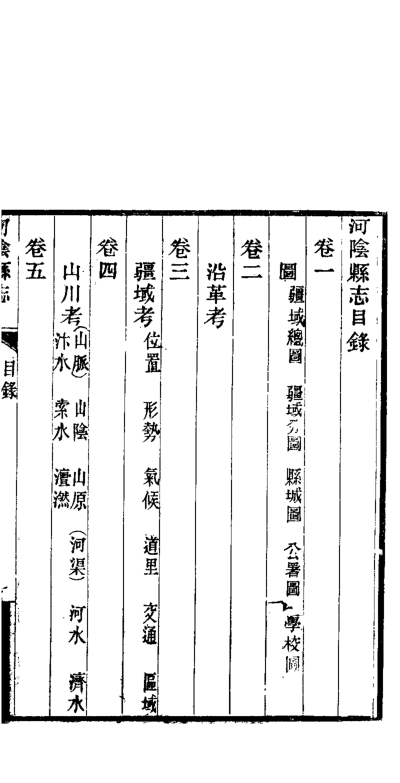 河陰縣志目錄
卷一
圖 疆域總圖 疆域分圖 縣城圖 公署圖 學校圖
卷二
沿革考
卷三
疆域考 位置 形勢 氣候 道里 交通 區域
卷四
山川考 (山脈) 山陰 山原 (河渠) 河水 濟水
汴水 索水 澶灊
卷五
河陰縣志 目錄